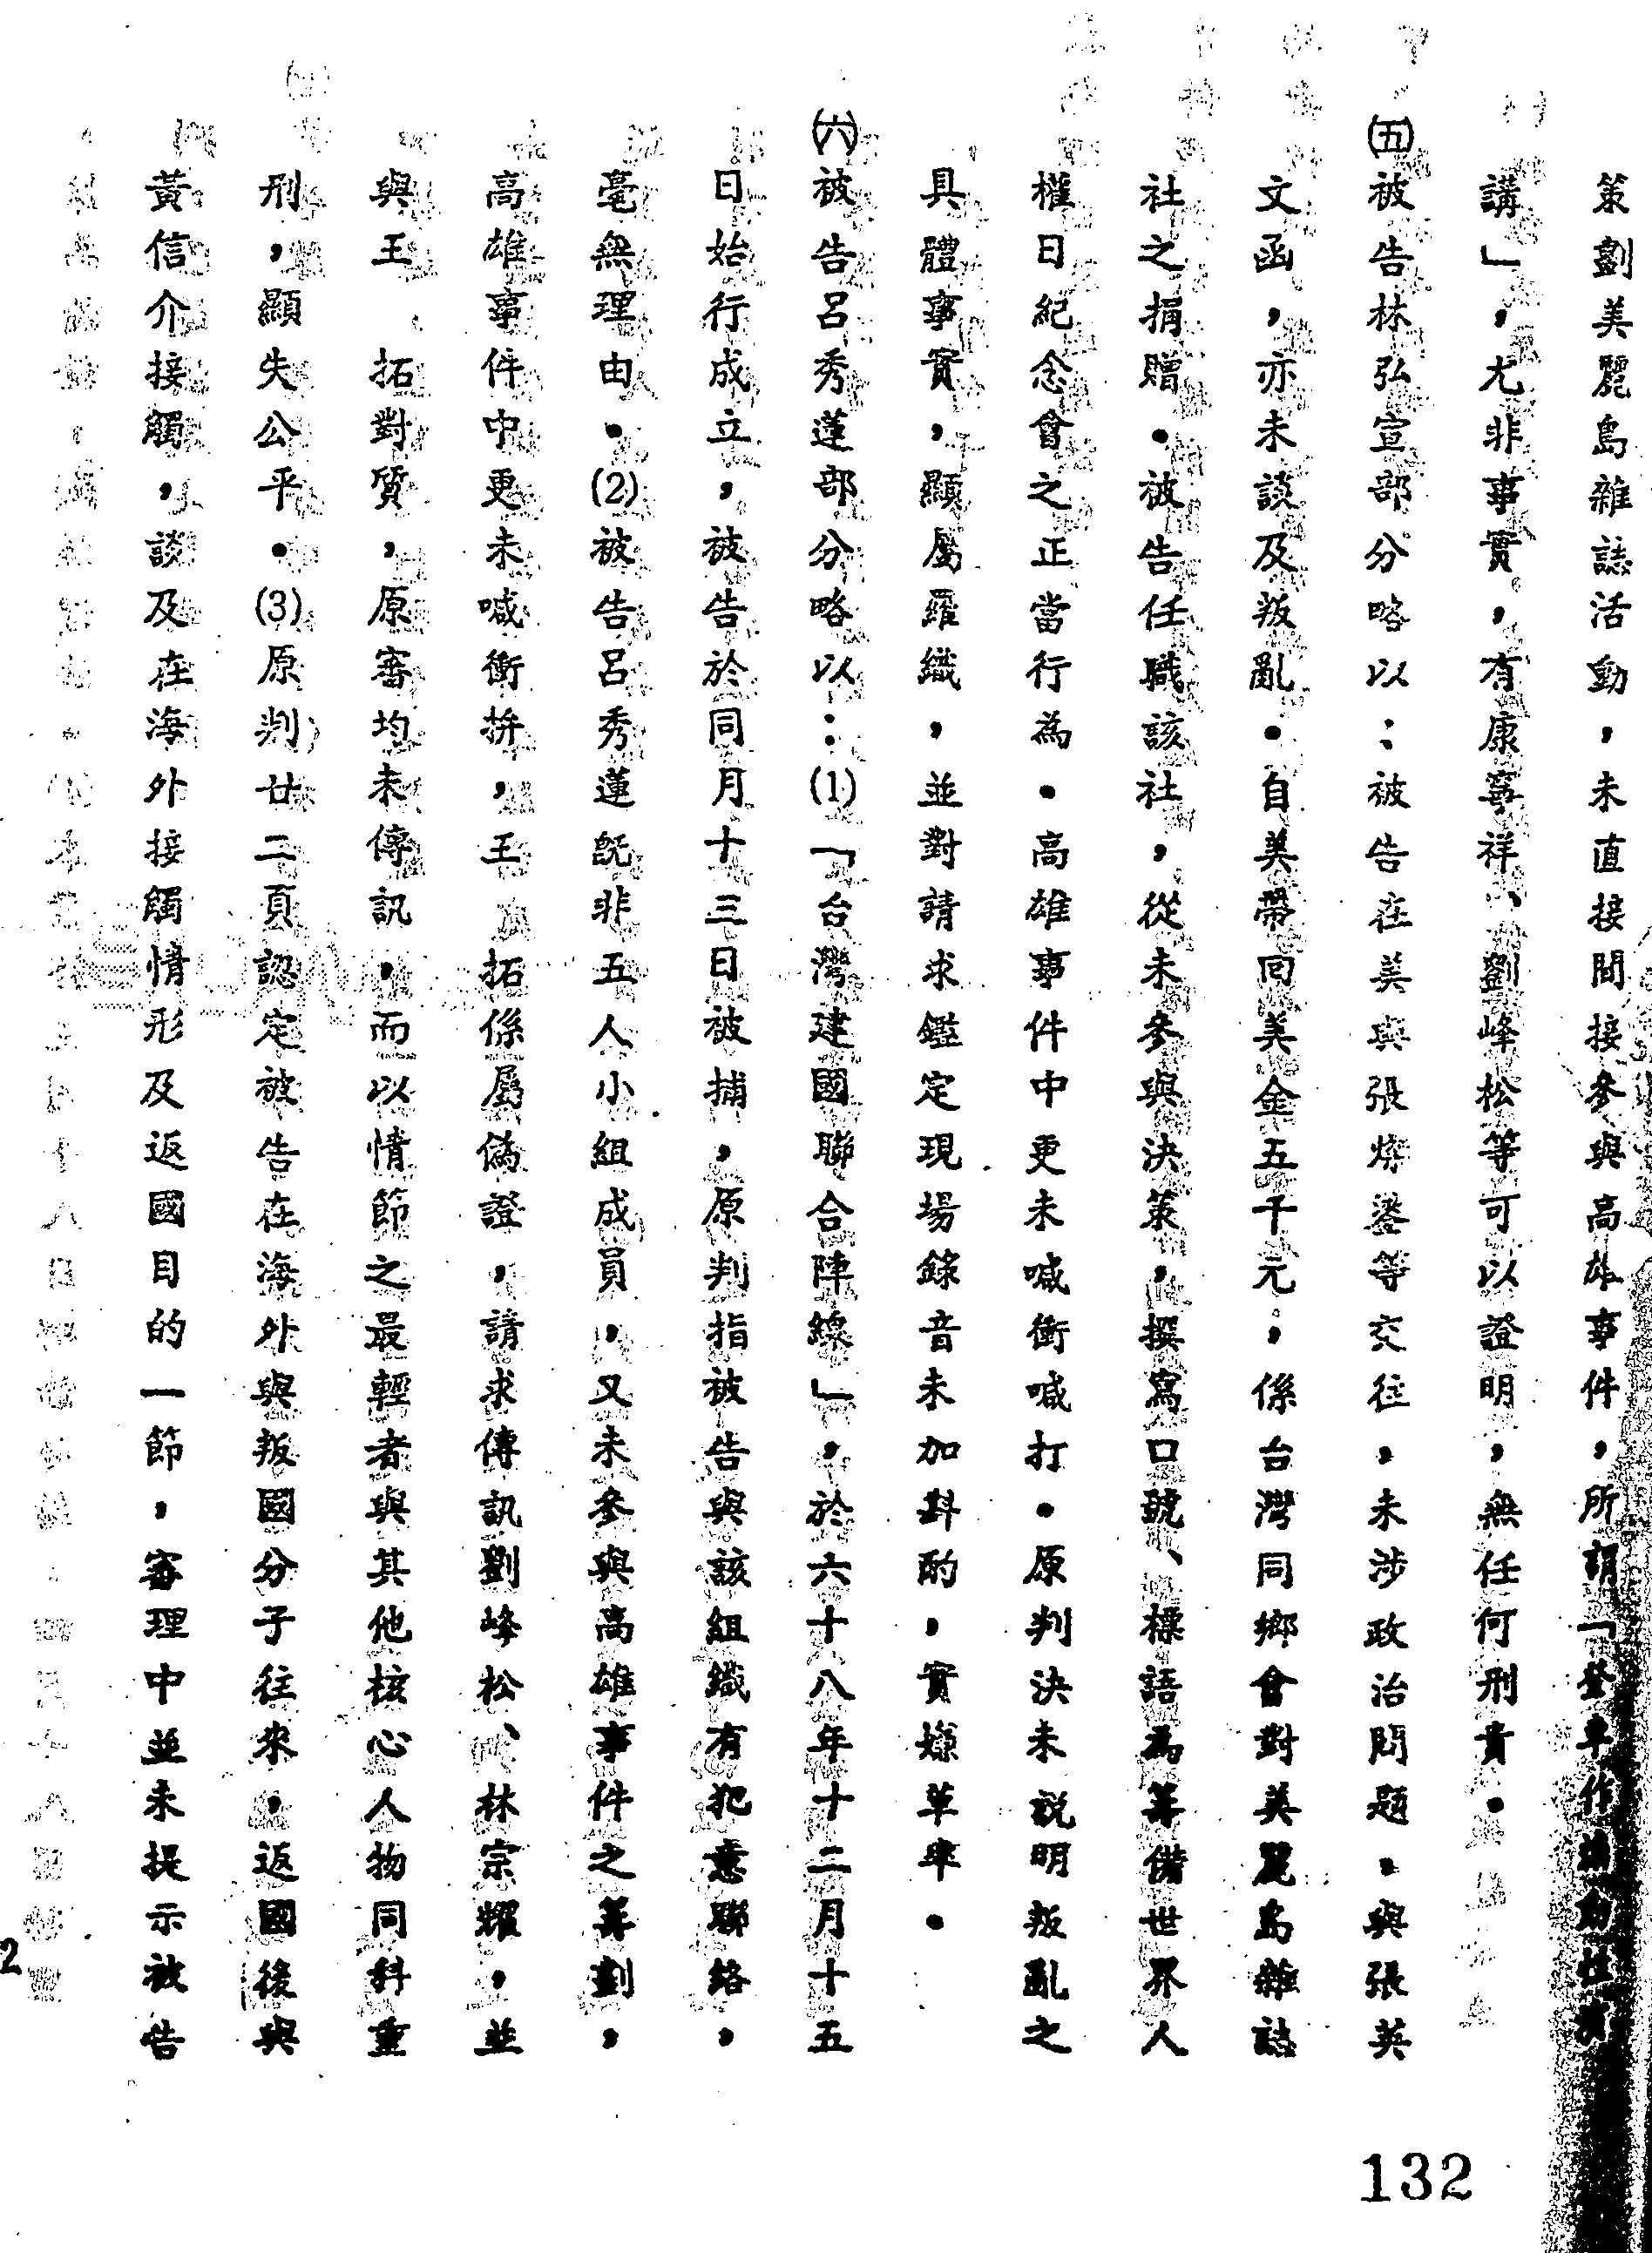 策劃美麗島雜誌活動，未直接間接參與高雄事件，所謂「登車作煽動性演
講」，尤非事實，有康寧祥、劉峰松等可以證明，無任何刑責。
㈤被告林弘宣部分略以：被告在美與張燦鍙等交往，未涉政治問題。與張英
文函，亦未談及叛亂。自美帶回美金五千元，係台灣同鄉會對美麗島雜誌
社之捐贈。被告任職該社，從未參與決策，撰寫口號、標語為籌備世界人
權日紀念會之正當行為。高雄事件中更未喊衝喊打。原判決未說明叛亂之
具體事實，顯屬羅織，並對請求鑑定現場錄音未加斟酌，實嫌草率。
㈥被告呂秀蓮部分略以：(1)「台灣建國聯合陣線」，於六十八年十二月十五
日始行成立，被告於同月十三日被捕，原判指被告與該組織有犯意聯絡，
毫無理由。(2)被告呂秀蓮既非五人小組成員，又未參與高雄事件之籌劃，
高雄事件中更未喊衝拚，王　拓係屬偽證，請求傳訊劉峰松、林宗耀，並
與王　拓對質，原審均未傳訊，而以情節之最輕者與其他核心人物同科重
刑，顯失公平。(3)原判廿二頁認定被告在海外與叛國分子往來，返國後與
黃信介接觸，談及在海外接觸情形及返國目的一節，審理中並未提示被告
132
2